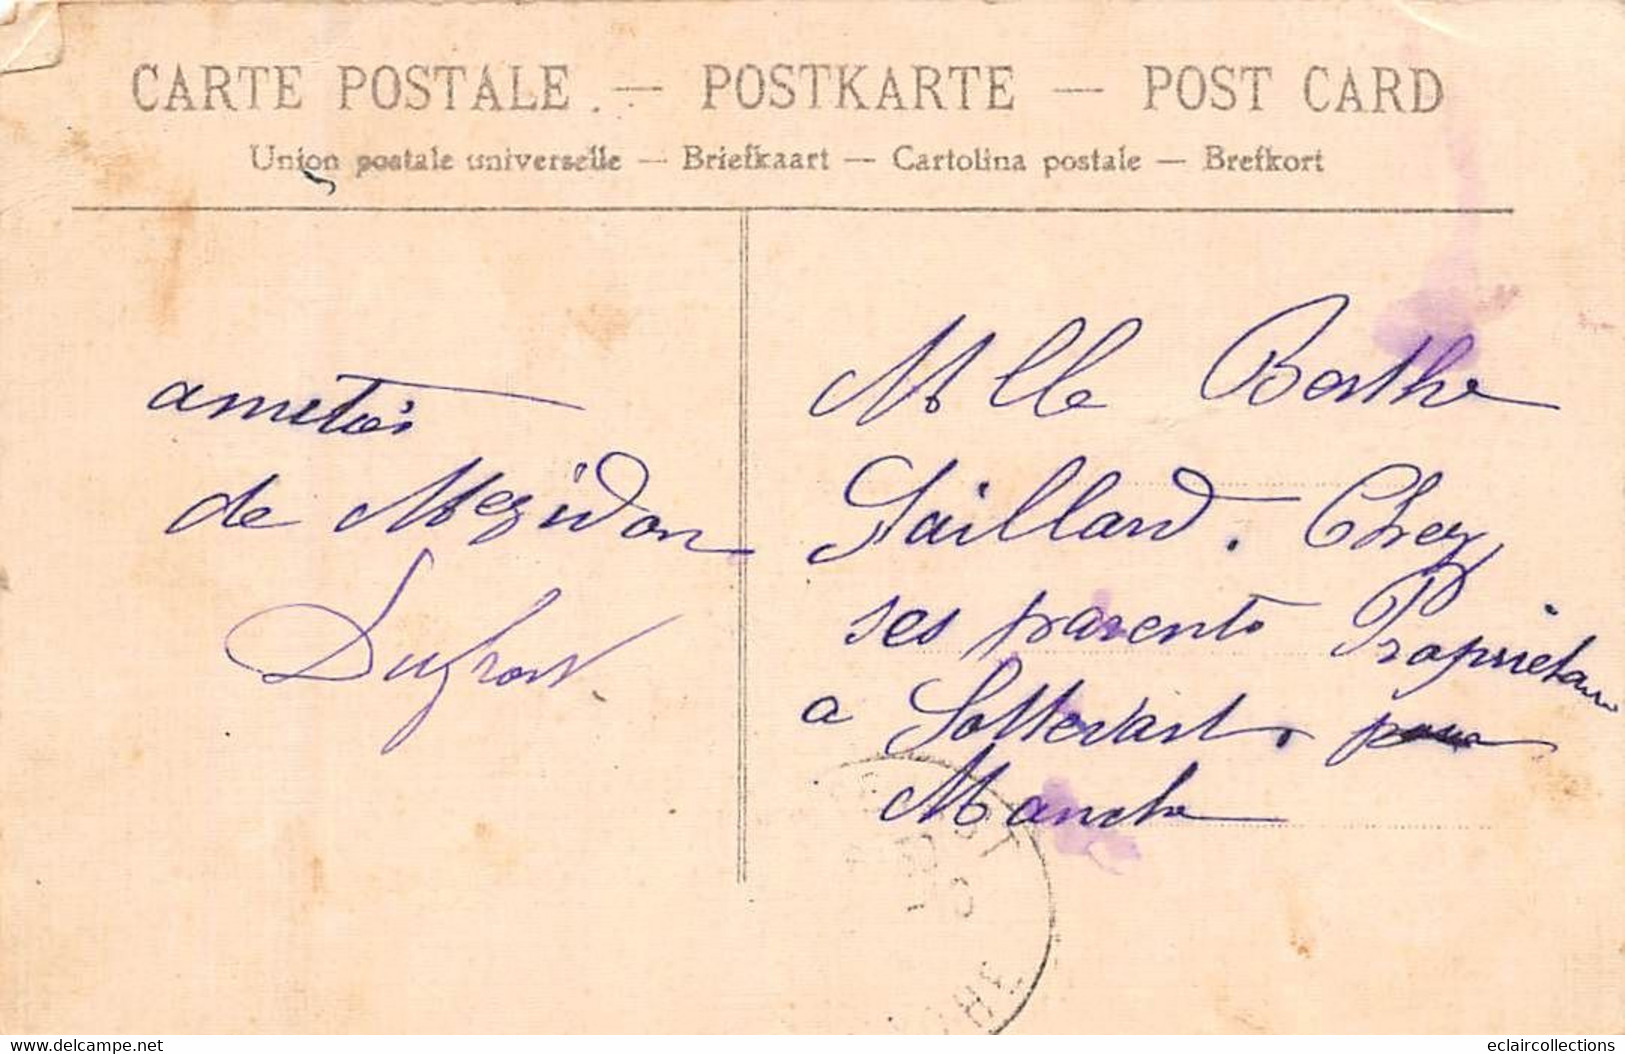 CARTE POSTALE — POSTKARTE — POST CARD
Union postale universelle — Briefkaart — Cartolina postale — Brefkort
ametiés
de Mezidon
Mlle Berthe
Gaillard. Chez
ses parents Propriétaire
a Sottevast.
Manche
www.delcampe.net
eclaircollections